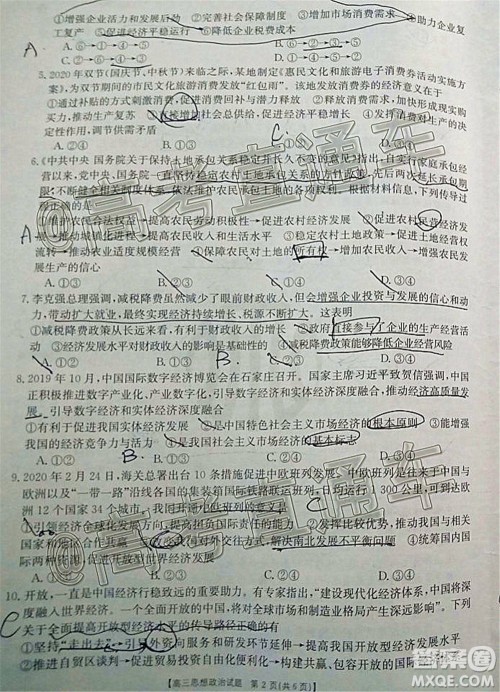 ①增强企业活力和发展后劲 ②完善社会保障制度 ③增加市场消费需求 ④助力企业复
工复产 ⑤促进经济平稳运行 ⑥降低企业税费成本
A
5. 2020年双节(国庆节、中秋节)来临之际,某地制定《惠民文化和旅游电子消费券活动实施方
案》,为双节期间的市民文化旅游消费发放“红包雨”。该地发放消费券的经济意义在于
①通过补贴的方式刺激消费,促进消费回补与潜力释放
买力,推动生产复苏 ③直接增加
求,促进经济平稳增长 ④发挥消费对生产的决
定作用,调节供需矛盾
A. ①② B. ①④ C. ②③ D. ③④
6.《中共中央 国务院关于保持土地承包关系稳定并长久不变的意见》指出,自实行家庭承包经
营以来,党中央、国务院一直坚持稳定农村土地承包关系的方针政策,先后两次延长承包期
限,不断健全相关制度体系,依法维护农民承包
土地的各项权利。根据材料信息,下列传导过
程正确的是
A
农民合法权益→提高农民劳动积极性→促进农村经济发展 ②促进农村民营经济发
展→推动城镇化进程→提高农民收入和生活水平 ③稳定农村土地政策→促进土地经营权
流转→推动农业适度规模经营 ④保障农民对土地的所有权→增加农民收入→增强农民发
展生产的信心
A. ①③ B. ①④ C. ②③ D. ②④
7. 李克强总理强调,减税降费虽然减少了眼前财政收入,但会增强企业投资与发展的信心和动
力,带动扩大就业,最终实现经济持续增长,税源不断扩大。这表明
①减税降费政策从长远来看,有利于财政增收 ②政府直接参与了企业的生产经营活
动 ③经济发展水平对财政收入的影响是基础性的 ④减税降费政策能够降低企业经营风险
A. ①② B. ①③ C. ②④ D. ③④
B.
8. 2019年10月,中国国际数字经济博览会在石家庄召开。国家主席习近平致贺信强调,中国
正积极推进数字产业化、产业数字化,引导数字经济和实体经济深度融合,推动经济高质量发
展。引导数字经济和实体经济深度融合
①有利于促进高质量发展 ②是中国特色社会主义市场经济的根本原则 ③能增强
我国的经济竞争力与活力 ④是我国社会主义市场经济的基本标志
A. ①② B. ①③ C. ②④ D. ③④
B.
9. 2020年2月24日,海关总署出台10条措施促进中欧班列发展。中欧班列是往来于中国与
欧洲以及“一带一路”沿线各国的集装箱国际铁路联运班列,
运行约1 300公里,可到达
欧洲12个国家34个城市。我
中欧班列的意义是
①引领经济全球化发展方向,提升我国
担国际责任的能力 ②推动我国与相关
国家和地
合作共赢 ③改变我国对外交往方式,解决南北发展不平衡问题 ④统筹国内
国际两种资源,促进开放型世界经济发展
A. ①② B. ①③ C. ②④ D. ③④
10. 开放,一直是中国经济行稳致远的重要助力。有学者表示:“建设现代化经济体系,中国将深
度融入世界经济。一个全面开放的中国,将对全球市场和制造业格局产生深远影响。”下列
C
关于全面提高开放型经济水平的传导路径正确的有
①坚持“走出去”→引导外资向服务和研发环节延伸→提高我国开放型经济发展水平
②推进自贸区谈判→促进贸易与投资便利化→推动构建我国全面开放新格局
高三思想政治试题 第2页(共6页)
@高考直通车
答案圈
MXQE.COM